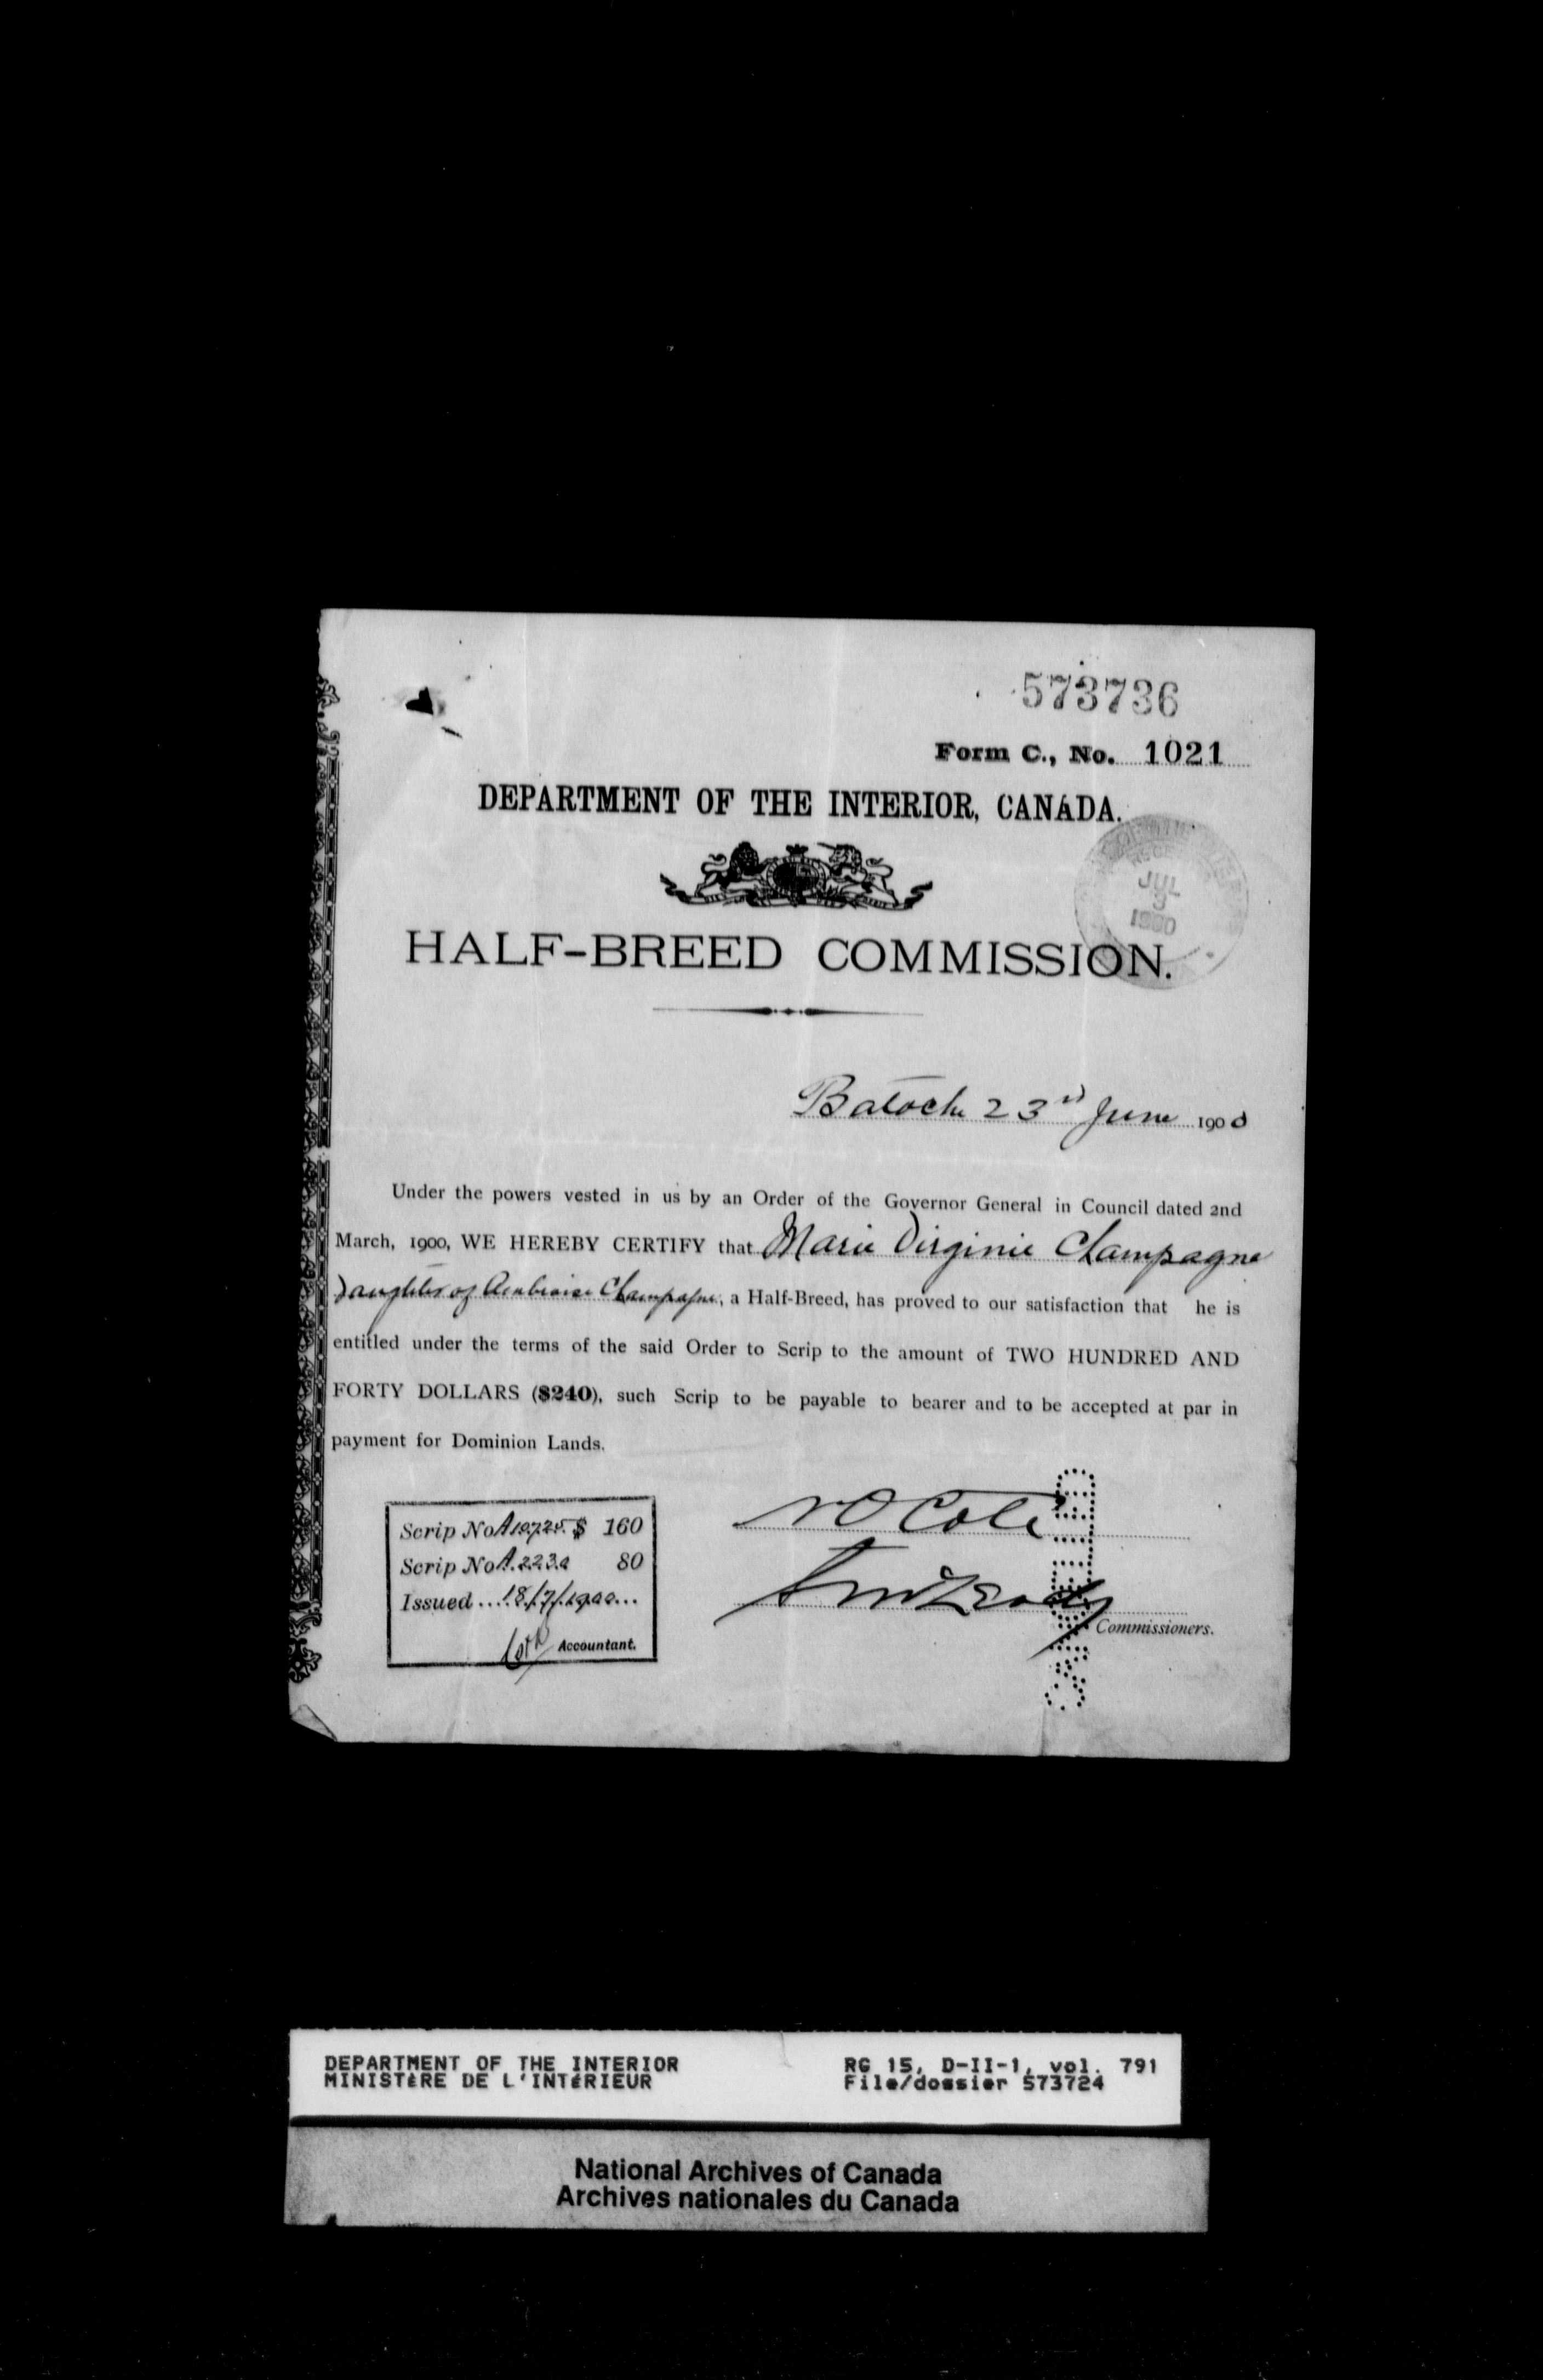 573736
Form C., No. 1021
DEPARTMENT OF THE INTERIOR, CANADA.
JUL
3
1900
HALF-BREED COMMISSION.
Batoche 23rd June 1900
Under the powers vested in us by an Order of the Governor General in Council dated 2nd
March, 1900, WE HEREBY CERTIFY that Marie Virginie Champagne
Daughter of Ambroise Champagne, a Half-Breed, has proved to our satisfaction that he is
entitled under the terms of the said Order to Scrip to the amount of TWO HUNDRED AND
FORTY DOLLARS ($240), such Scrip to be payable to bearer and to be accepted at par in
payment for Dominion Lands.
Scrip No A 10725 $ 160
Scrip No A. 2232 80
Issued 18/7/1900
Accountant.
N O Coté
Commissioners.
DEPARTMENT OF THE INTERIOR
MINISTÈRE DE L'INTÉRIEUR
RG 15, D-II-1, vol. 791
File/dossier 573724
National Archives of Canada
Archives nationales du Canada